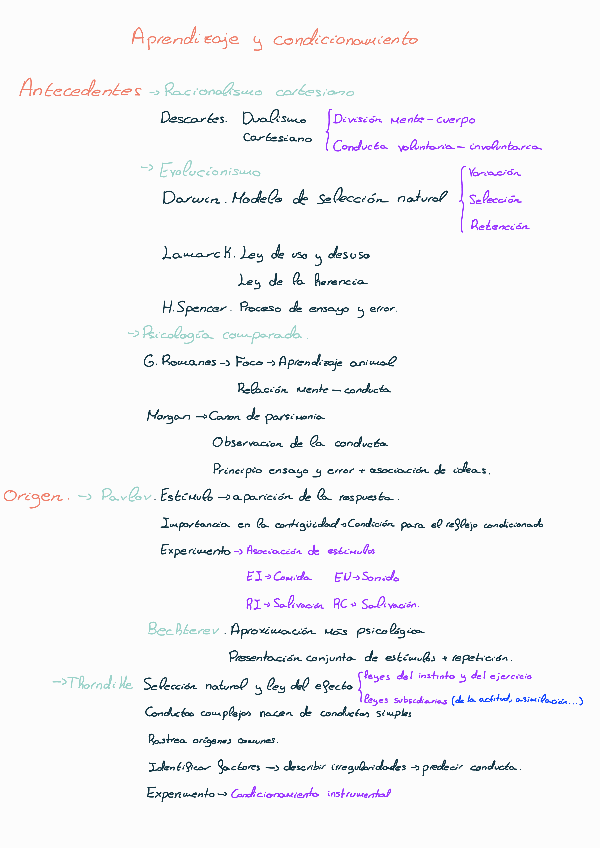 Aprendizaje y condicionamiento
Antecedentes → Racionalismo cartesiano
Descartes. Dualismo cartesiano { División mente - cuerpo
Conducta voluntaria - involuntaria
→ Evolucionismo
Darwin. Modelo de selección natural { Variación
Selección
Retención
Lamarck. Ley de uso y desuso
Ley de la herencia
H. Spencer. Proceso de ensayo y error.
→ Psicología comparada.
G. Romanes → Foco → Aprendizaje animal
Relación mente - conducta
Morgan → Canon de parsimonia
Observacion de la conducta
Principio ensayo y error + asociación de ideas.
Origen. → Pavlov. Estímulo → aparición de la respuesta.
Importancia en la contigüidad → Condición para el reflejo condicionado
Experimento → Asociación de estímulos
EI → Comida EN → Sonido
RI → Salivación RC → Salivación.
Bechterev. Aproximación más psicológica
Presentación conjunta de estímulos + repetición.
→ Thorndike Selección natural y ley del efecto { leyes del instinto y del ejercicio
leyes subsidiarias (de la actitud, asimilación...)
Conductas complejas nacen de conductas simples
Rastrea orígenes comunes.
Identificar factores → describir irregularidades → predecir conducta.
Experimento → Condicionamiento instrumental